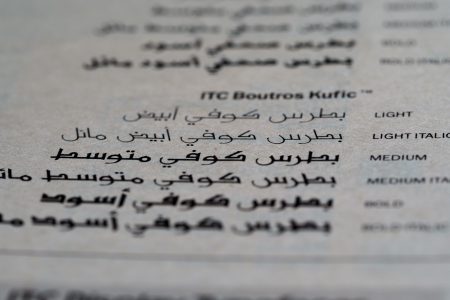 MEDIUM
بطرس صحفي أسود
BOLD
بطرس صحفي أسود مائل
BOLD ITALIC
ITC Boutros Kufic™
بطرس كوفي أبيض
LIGHT
بطرس كوفي أبيض مائل
LIGHT ITALIC
بطرس كوفي متوسط
MEDIUM
بطرس كوفي متوسط مائل
MEDIUM ITA
بطرس كوفي أسود
BOLD
بطرس كوفي أسود ما
BOLD ITALIC